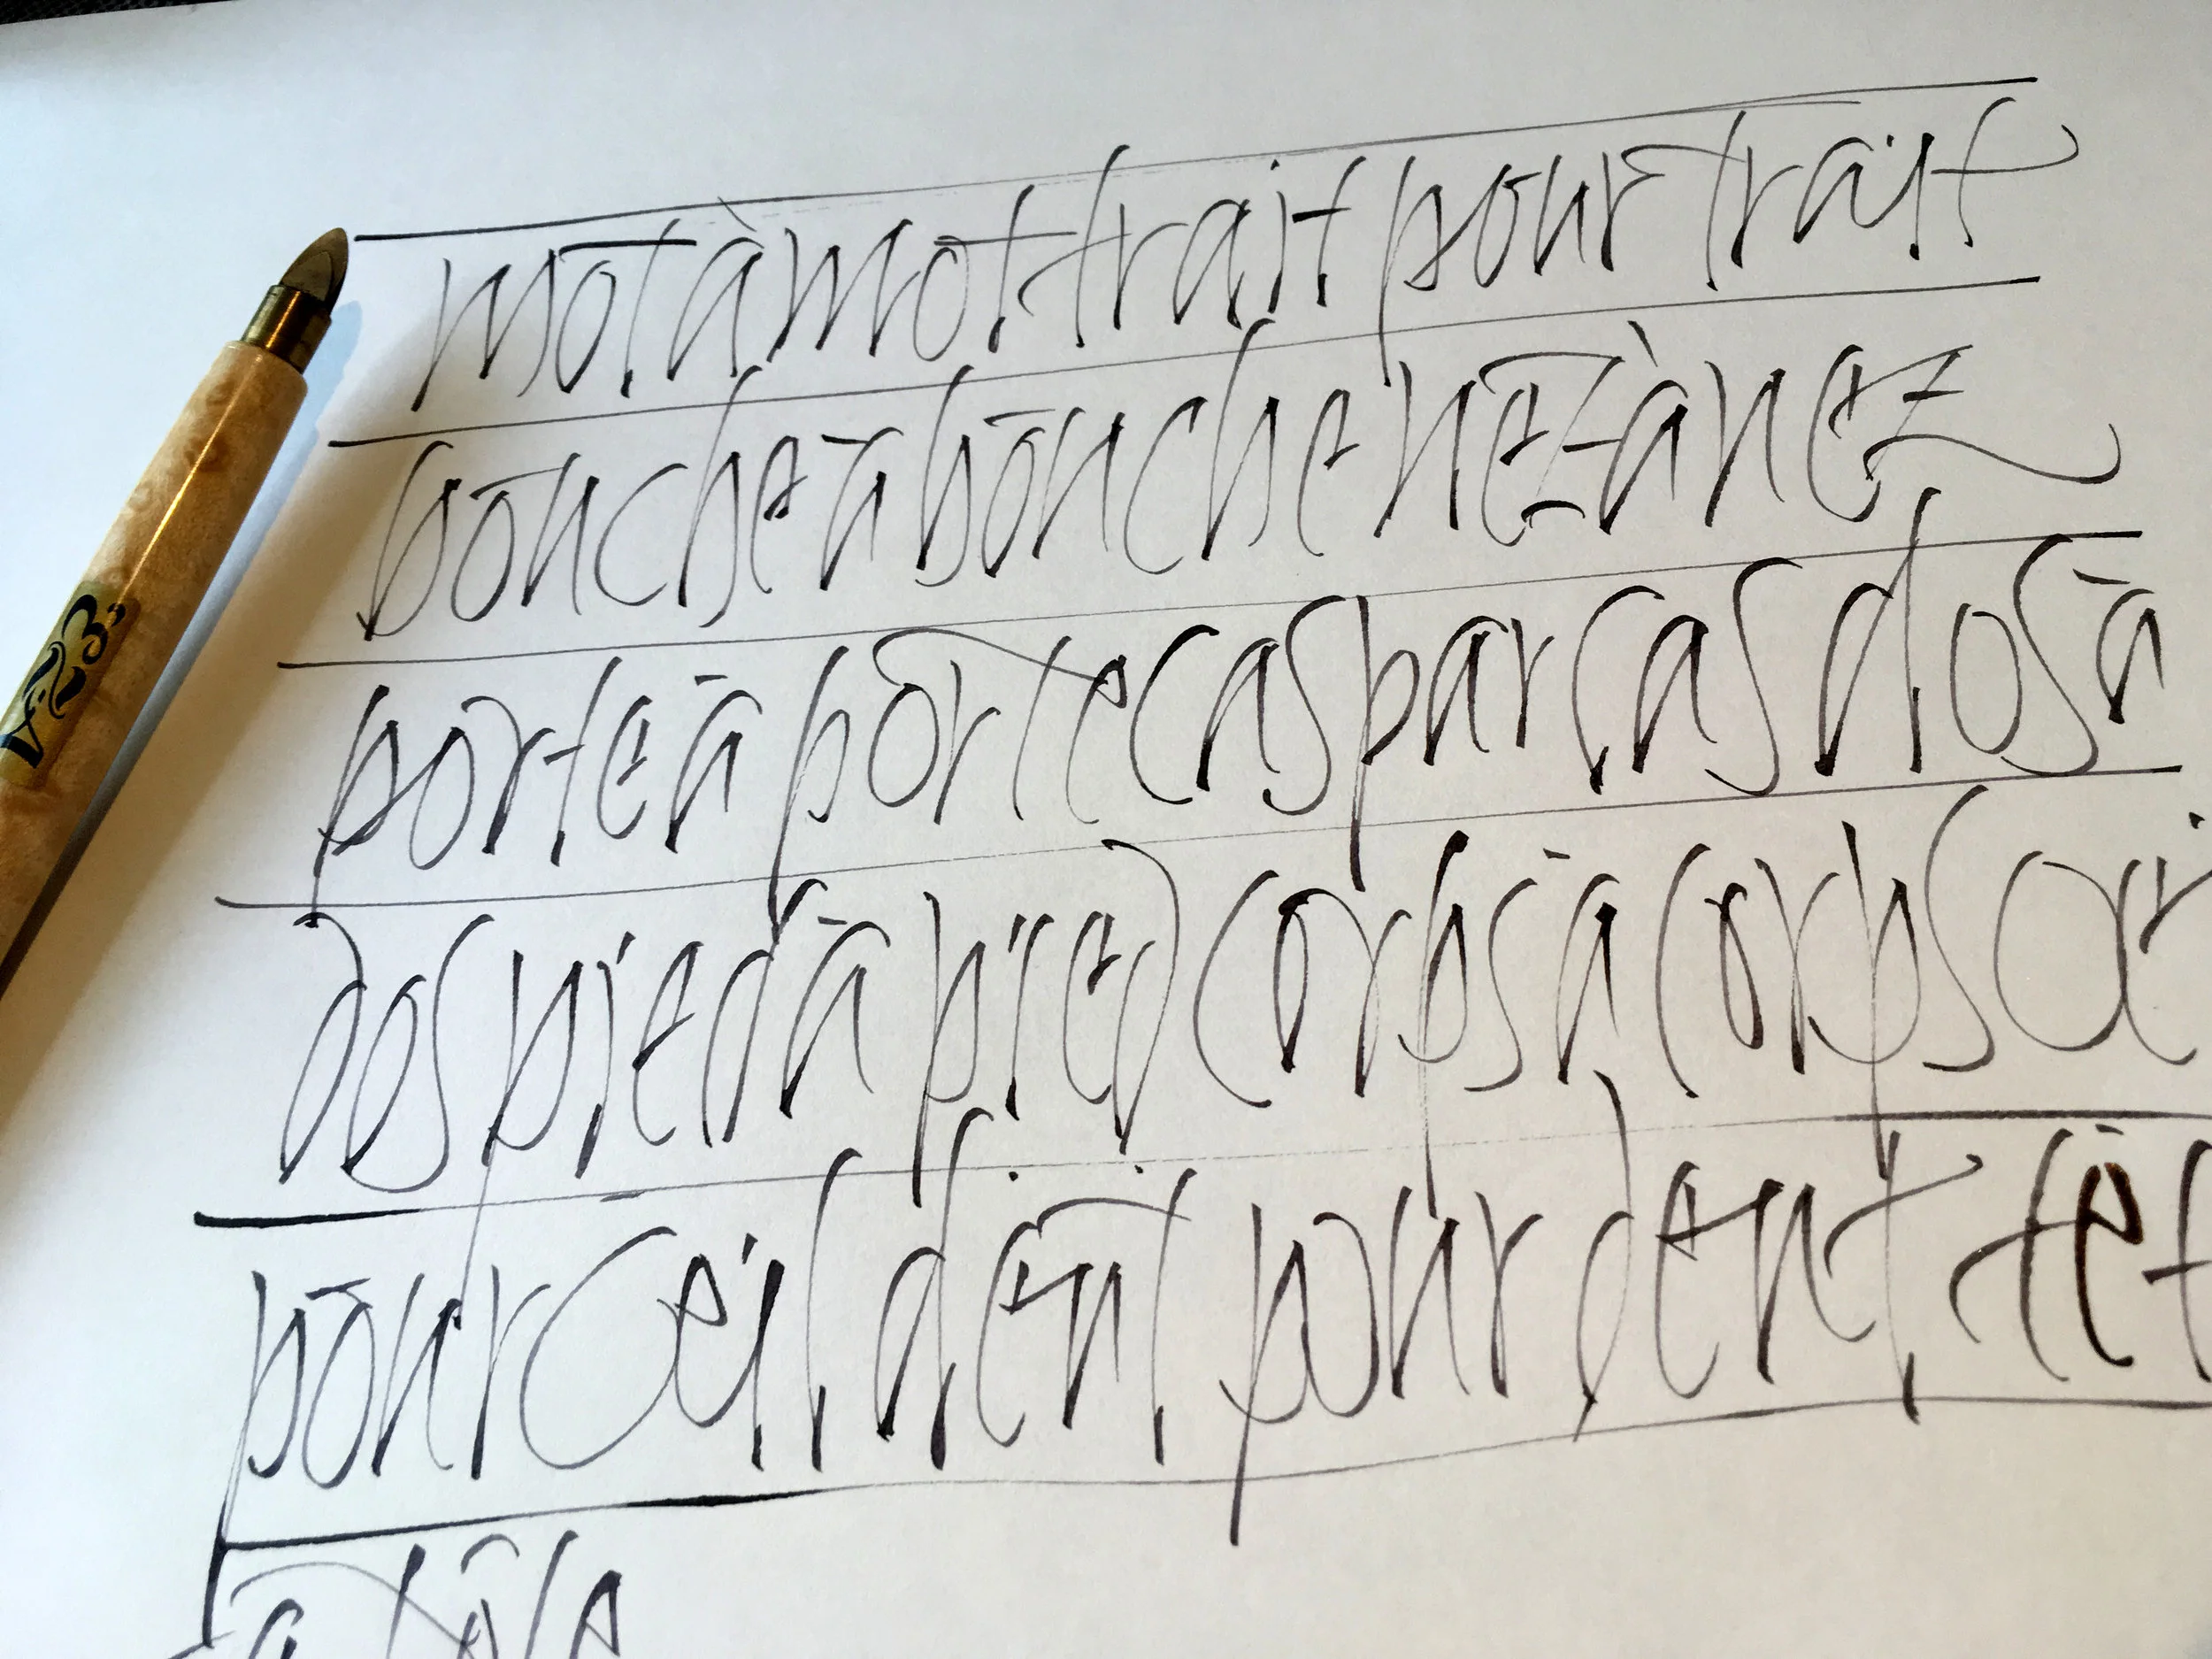 mot à mot trait pour trait
bouche à bouche nez à nez
porte à porte cas par cas dos à
dos pied à pied corps à corps œi
pour œil dent pour dent têt
à tête